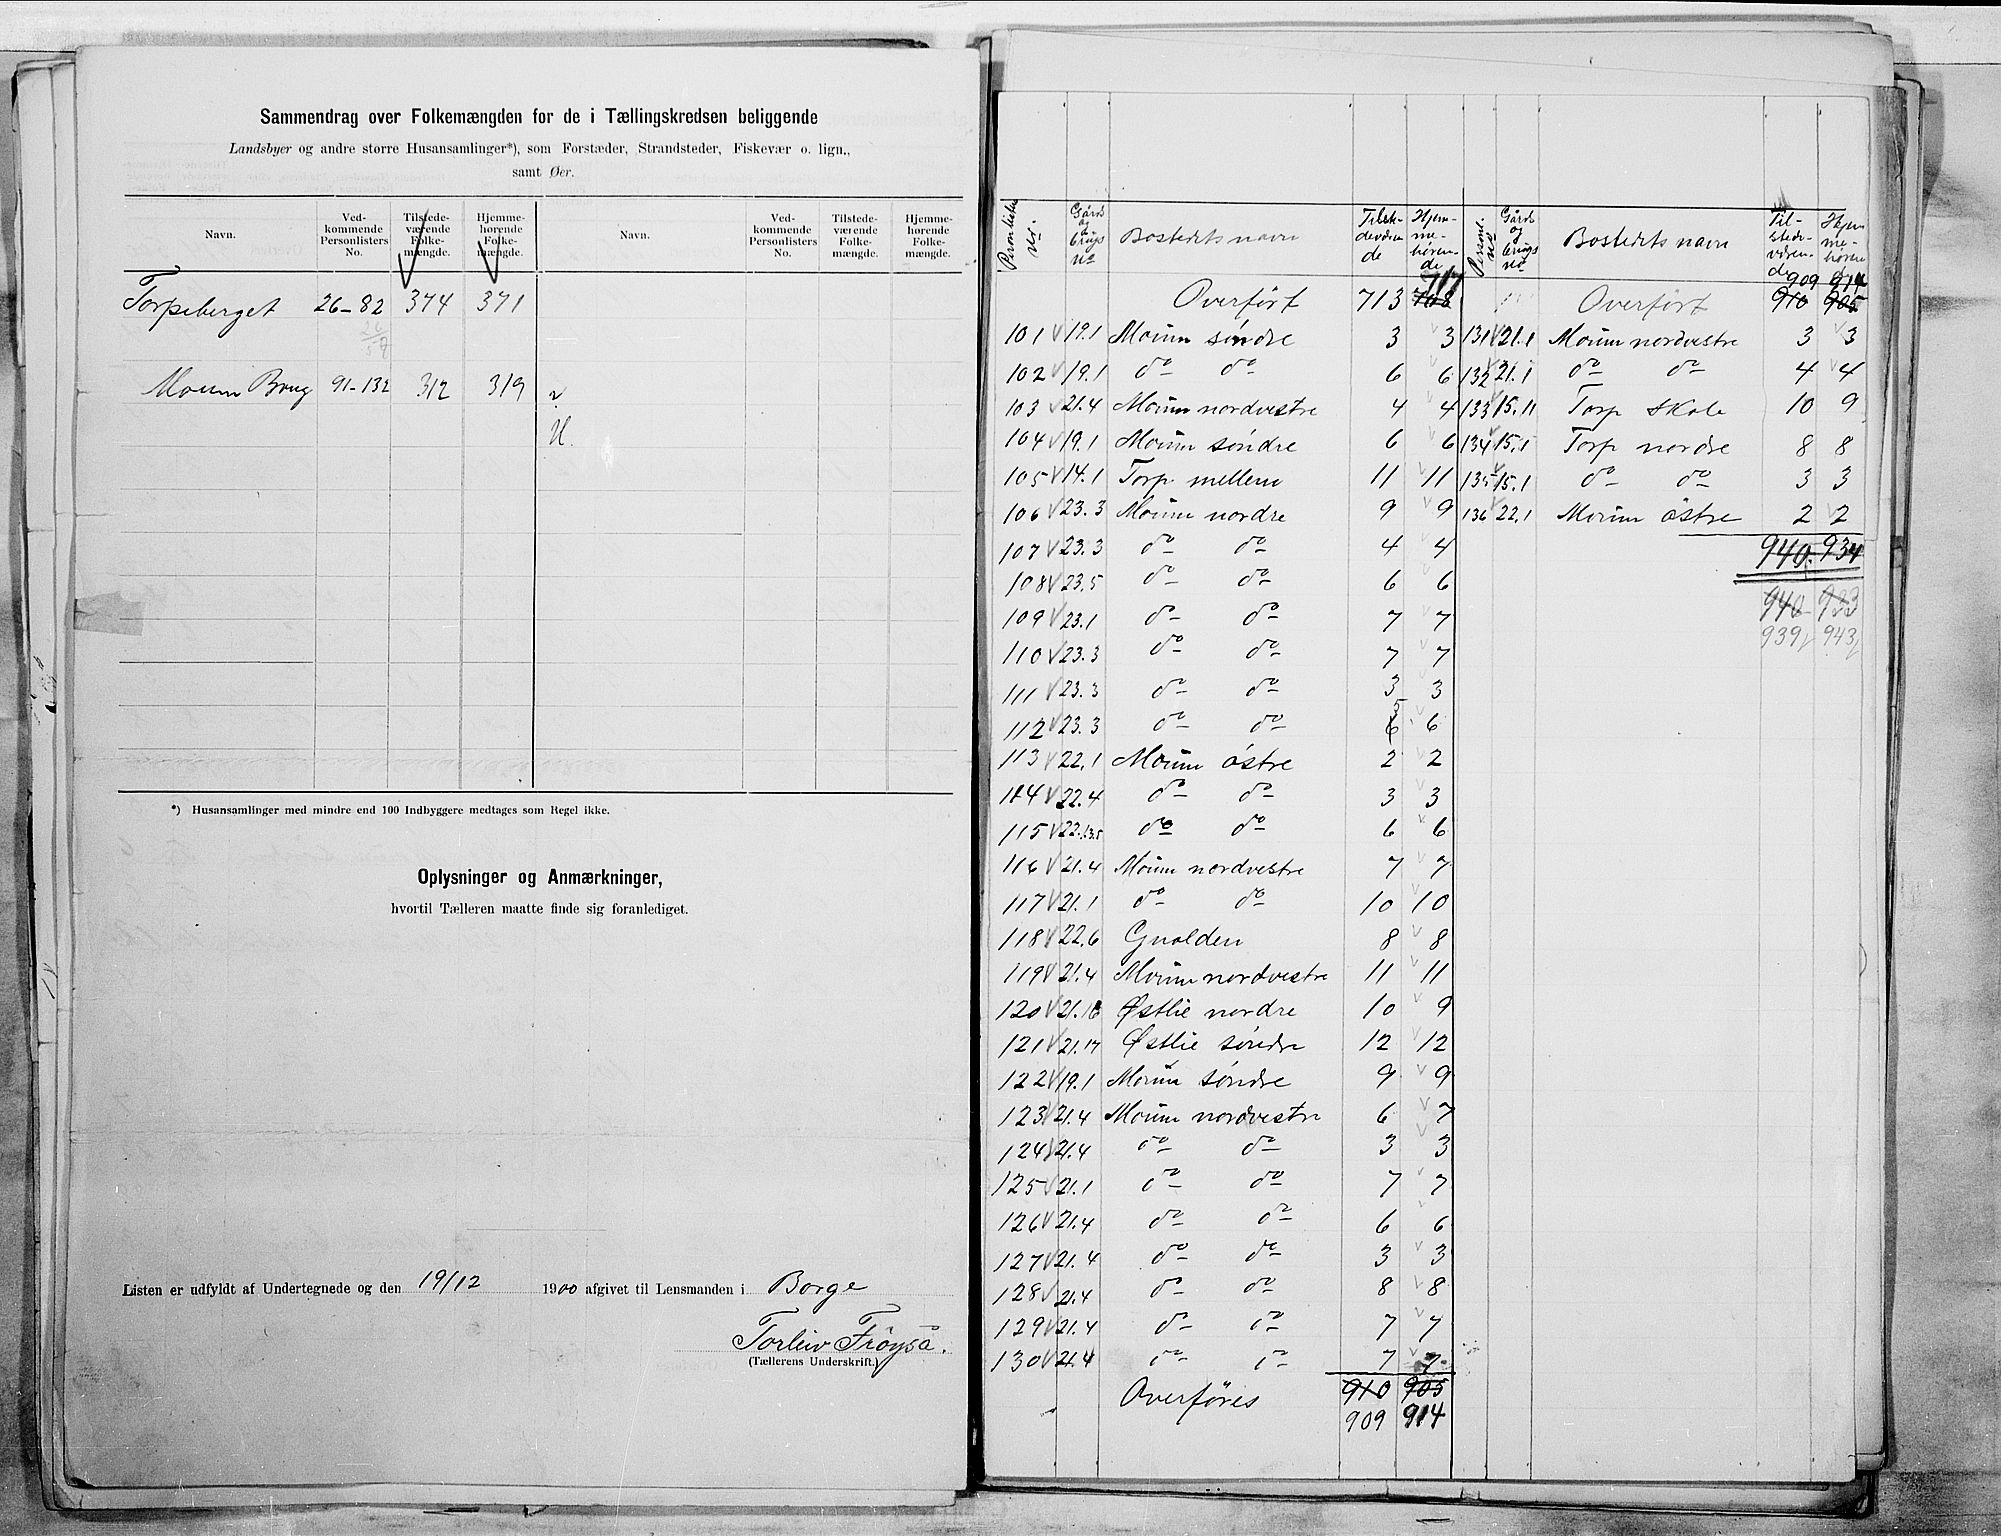 Sammendrag over Folkemængden for de i Tællingskredsen beliggende
Landsbyer og andre større Husansamlinger*), som Forstæder, Strandsteder, Fiskevær o. lign.,
samt Øer.
Navn. Ved-kommende Personlisters No. Tilstede-værende Folke-mængde. Hjemme-hørende Folke-mængde. Navn. Ved-kommende Personlisters No. Tilstede-værende Folke-mængde. Hjemme-hørende Folke-mængde.
Torpeberget 26-82 374 371
26
57
Moum Brug 91-132 312 319
*) Husansamlinger med mindre end 100 Indbyggere medtages som Regel ikke.
Oplysninger og Anmærkninger,
hvortil Tælleren maatte finde sig foranlediget.
Listen er udfyldt af Undertegnede og den 19/12 1900 afgivet til Lensmanden i Borge
Torleiv Frøyså.
(Tællerens Underskrift.)
Personliste nr. Gårds og brugs nº Bostedets navn Tilstedeværende Hjemmehørende
Overført 713 708 717
101 19.1 Moum søndre 3 3
102 19.1 dº dº 6 6
103 21.4 Moum nordvestre 4 4
104 19.1 Moum søndre 6 6
105 14.1 Torp mellem 11 11
106 23.3 Moum nordre 9 9
107 23.3 dº dº 4 4
108 23.5 dº dº 6 6
109 23.1 dº dº 7 7
110 23.3 dº dº 7 7
111 23.3 dº dº 3 3
112 23.3 dº dº 6 5 6
113 22.1 Moum østre 2 2
114 22.4 dº dº 3 3
115 22.13.5 dº dº 6 6
116 21.4 Moum nordvestre 7 7
117 21.1 dº dº 10 10
118 22.6 Gnolden 8 8
119 21.4 Moum nordvestre 11 11
120 21.16 Østlie nordre 10 9
121 21.17 Østlie søndre 12 12
122 19.1 Moum søndre 9 9
123 21.4 Moum nordvestre 6 7
124 21.4 dº dº 3 3
125 21.1 dº dº 7 7
126 21.4 dº dº 6 6
127 21.4 dº dº 3 3
128 21.4 dº dº 8 8
129 21.4 dº dº 7 7
130 21.4 dº dº 7 7
Overføres 910 905
909 914
Personl. nº Gårds og brugs nº Bostedets navn Tilstedeværende Hjemmehørende
909 914
Overført 910 905
131 21.1 Moum nordvestre 3 3
132 21.1 dº dº 4 4
133 15.11 Torp skole 10 9
134 15.1 Torp nordre 8 8
135 15.1 dº dº 3 3
136 22.1 Moum østre 2 2
940. 934
940 933
939 943